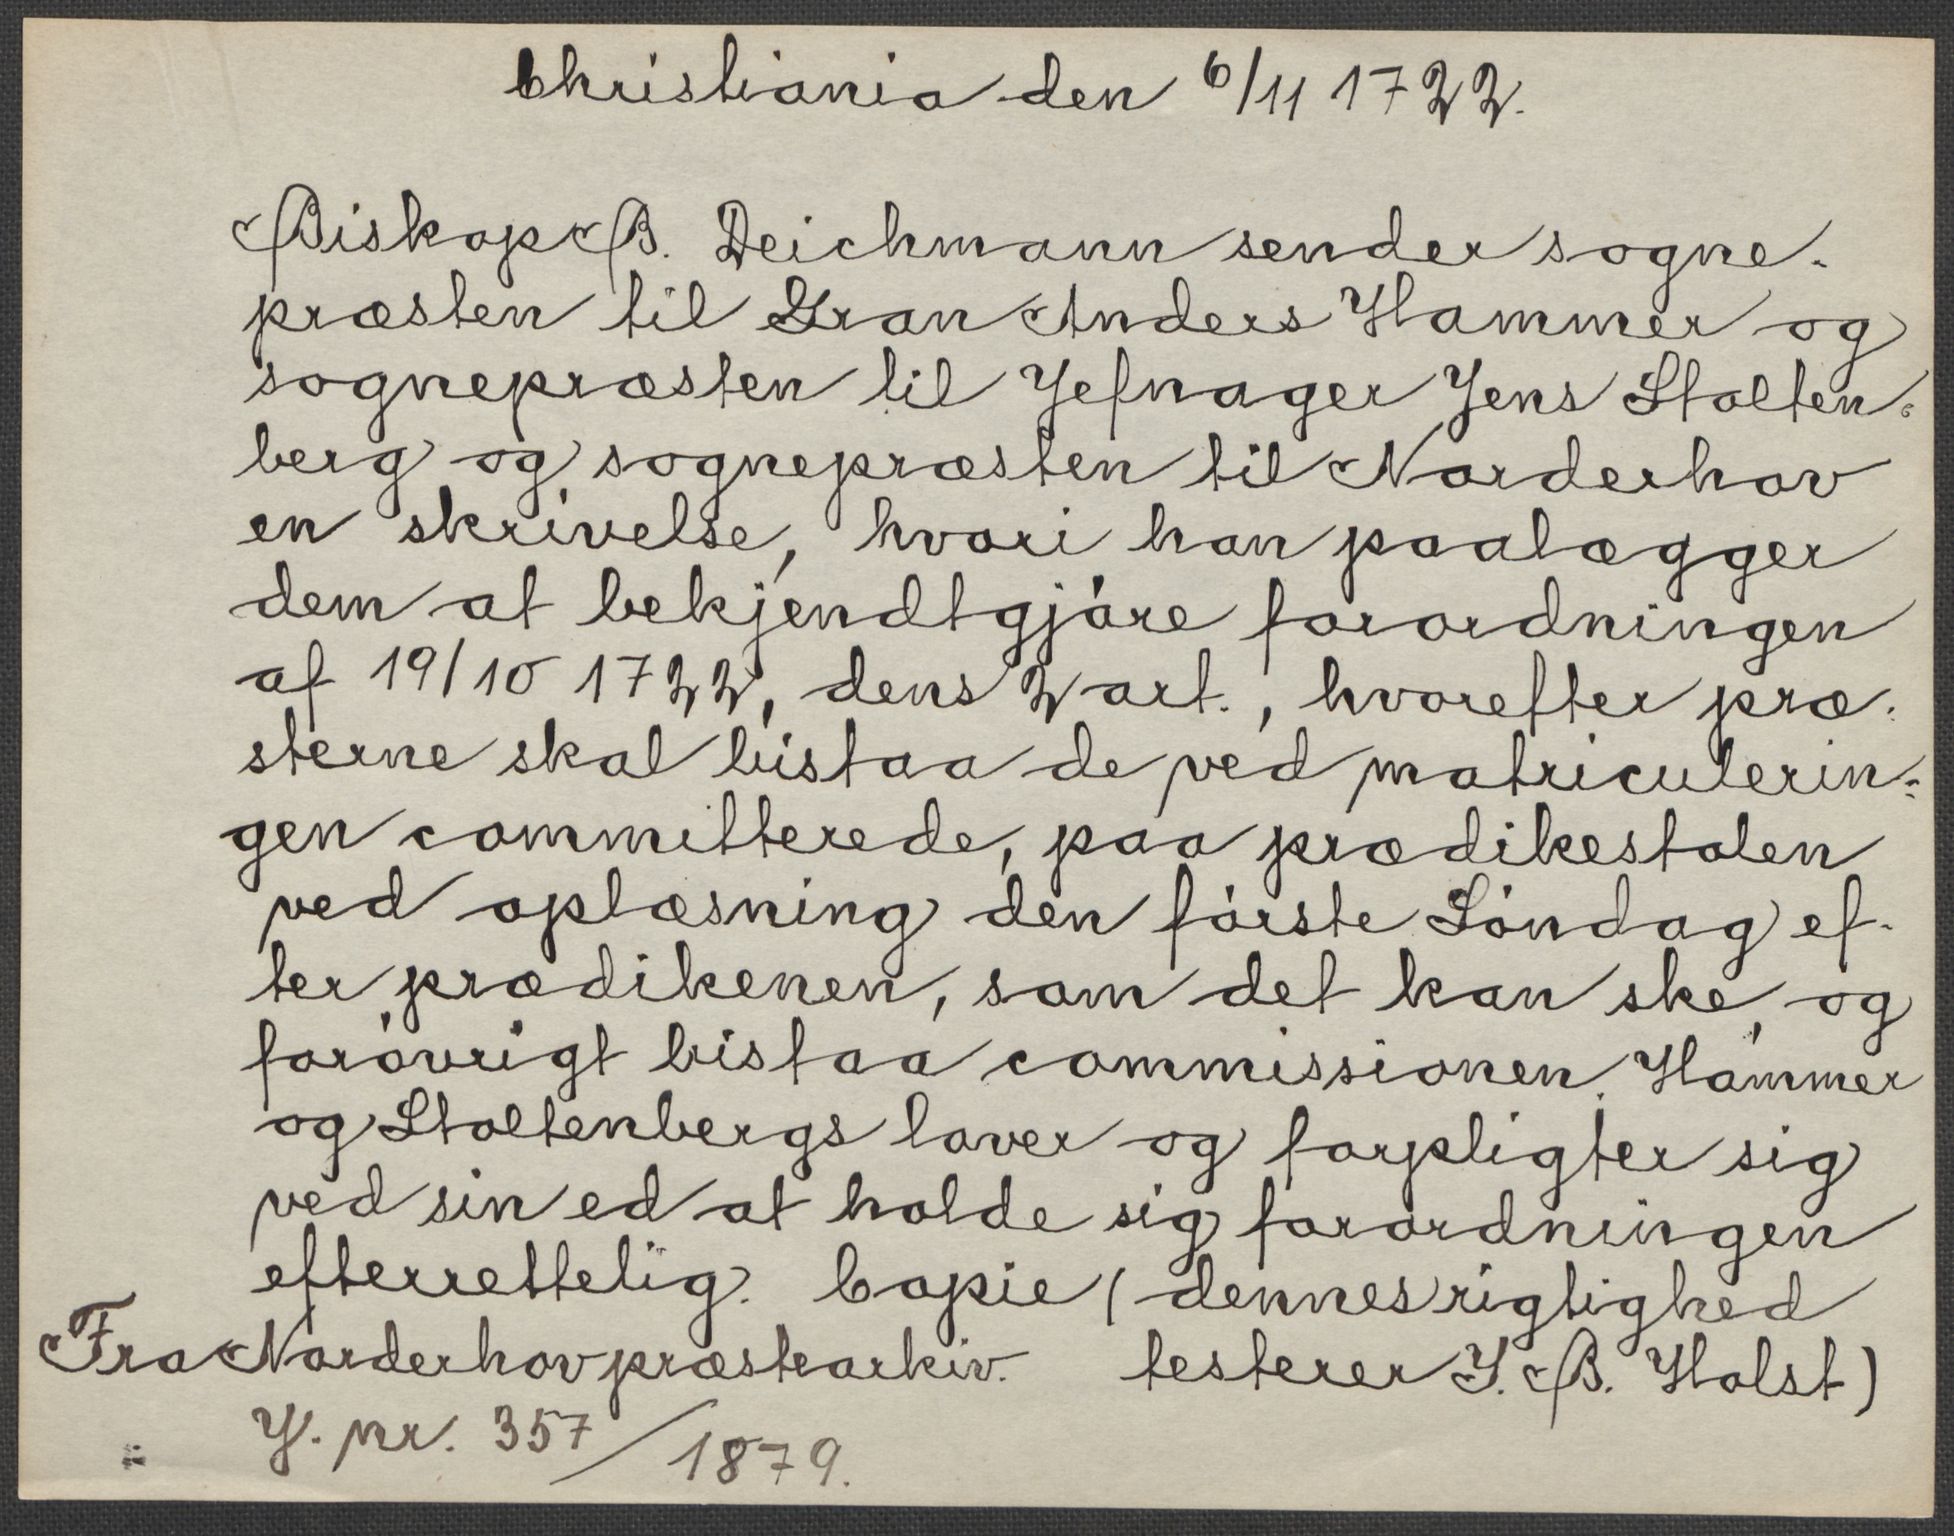 Christiania den 6/11 1722.
Biskop B. Deichmann sender sogne-
præsten til Gran Anders Hammer og
sognepræsten til Jefnager Jens Stolten-
berg og sognepræsten til Norderhov
en skrivelse, hvori han paalægger
dem at bekjendtgjøre forordningen
af 19/10 1722, dens 2 art., hvorefter præ-
sterne skal bistaa de ved matriculerin-
gen committerede, paa prædikestolen
ved oplæsning den første Søndag ef-
ter prædikenen, som det kan ske, og
forøvrigt bistaa commissionen. Hammer
og Stoltenbergs lover og forpligter sig
ved sin ed at holde sig forordningen
efterrettelig. Copie (dennes rigtighed
testerer J. B. Holst)
Fra Norderhov præstearkiv.
J. nr. 357/1879.